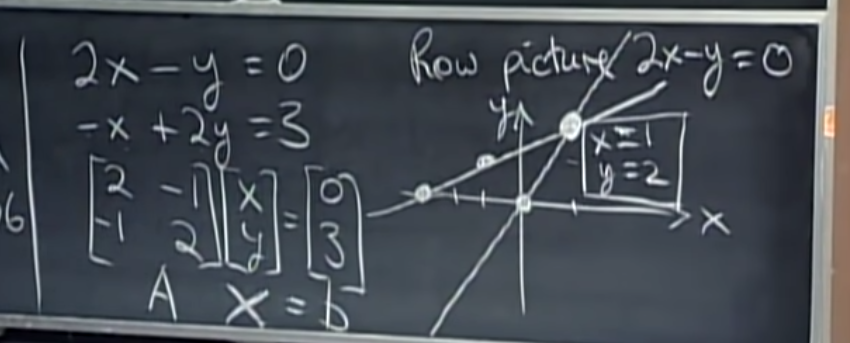 2x - y = 0
-x + 2y = 3
[2 -1] [x] = [0]
[-1 2] [y] [3]
A X = b
Row picture 2x-y=0
y
x=1
y=2
x
6